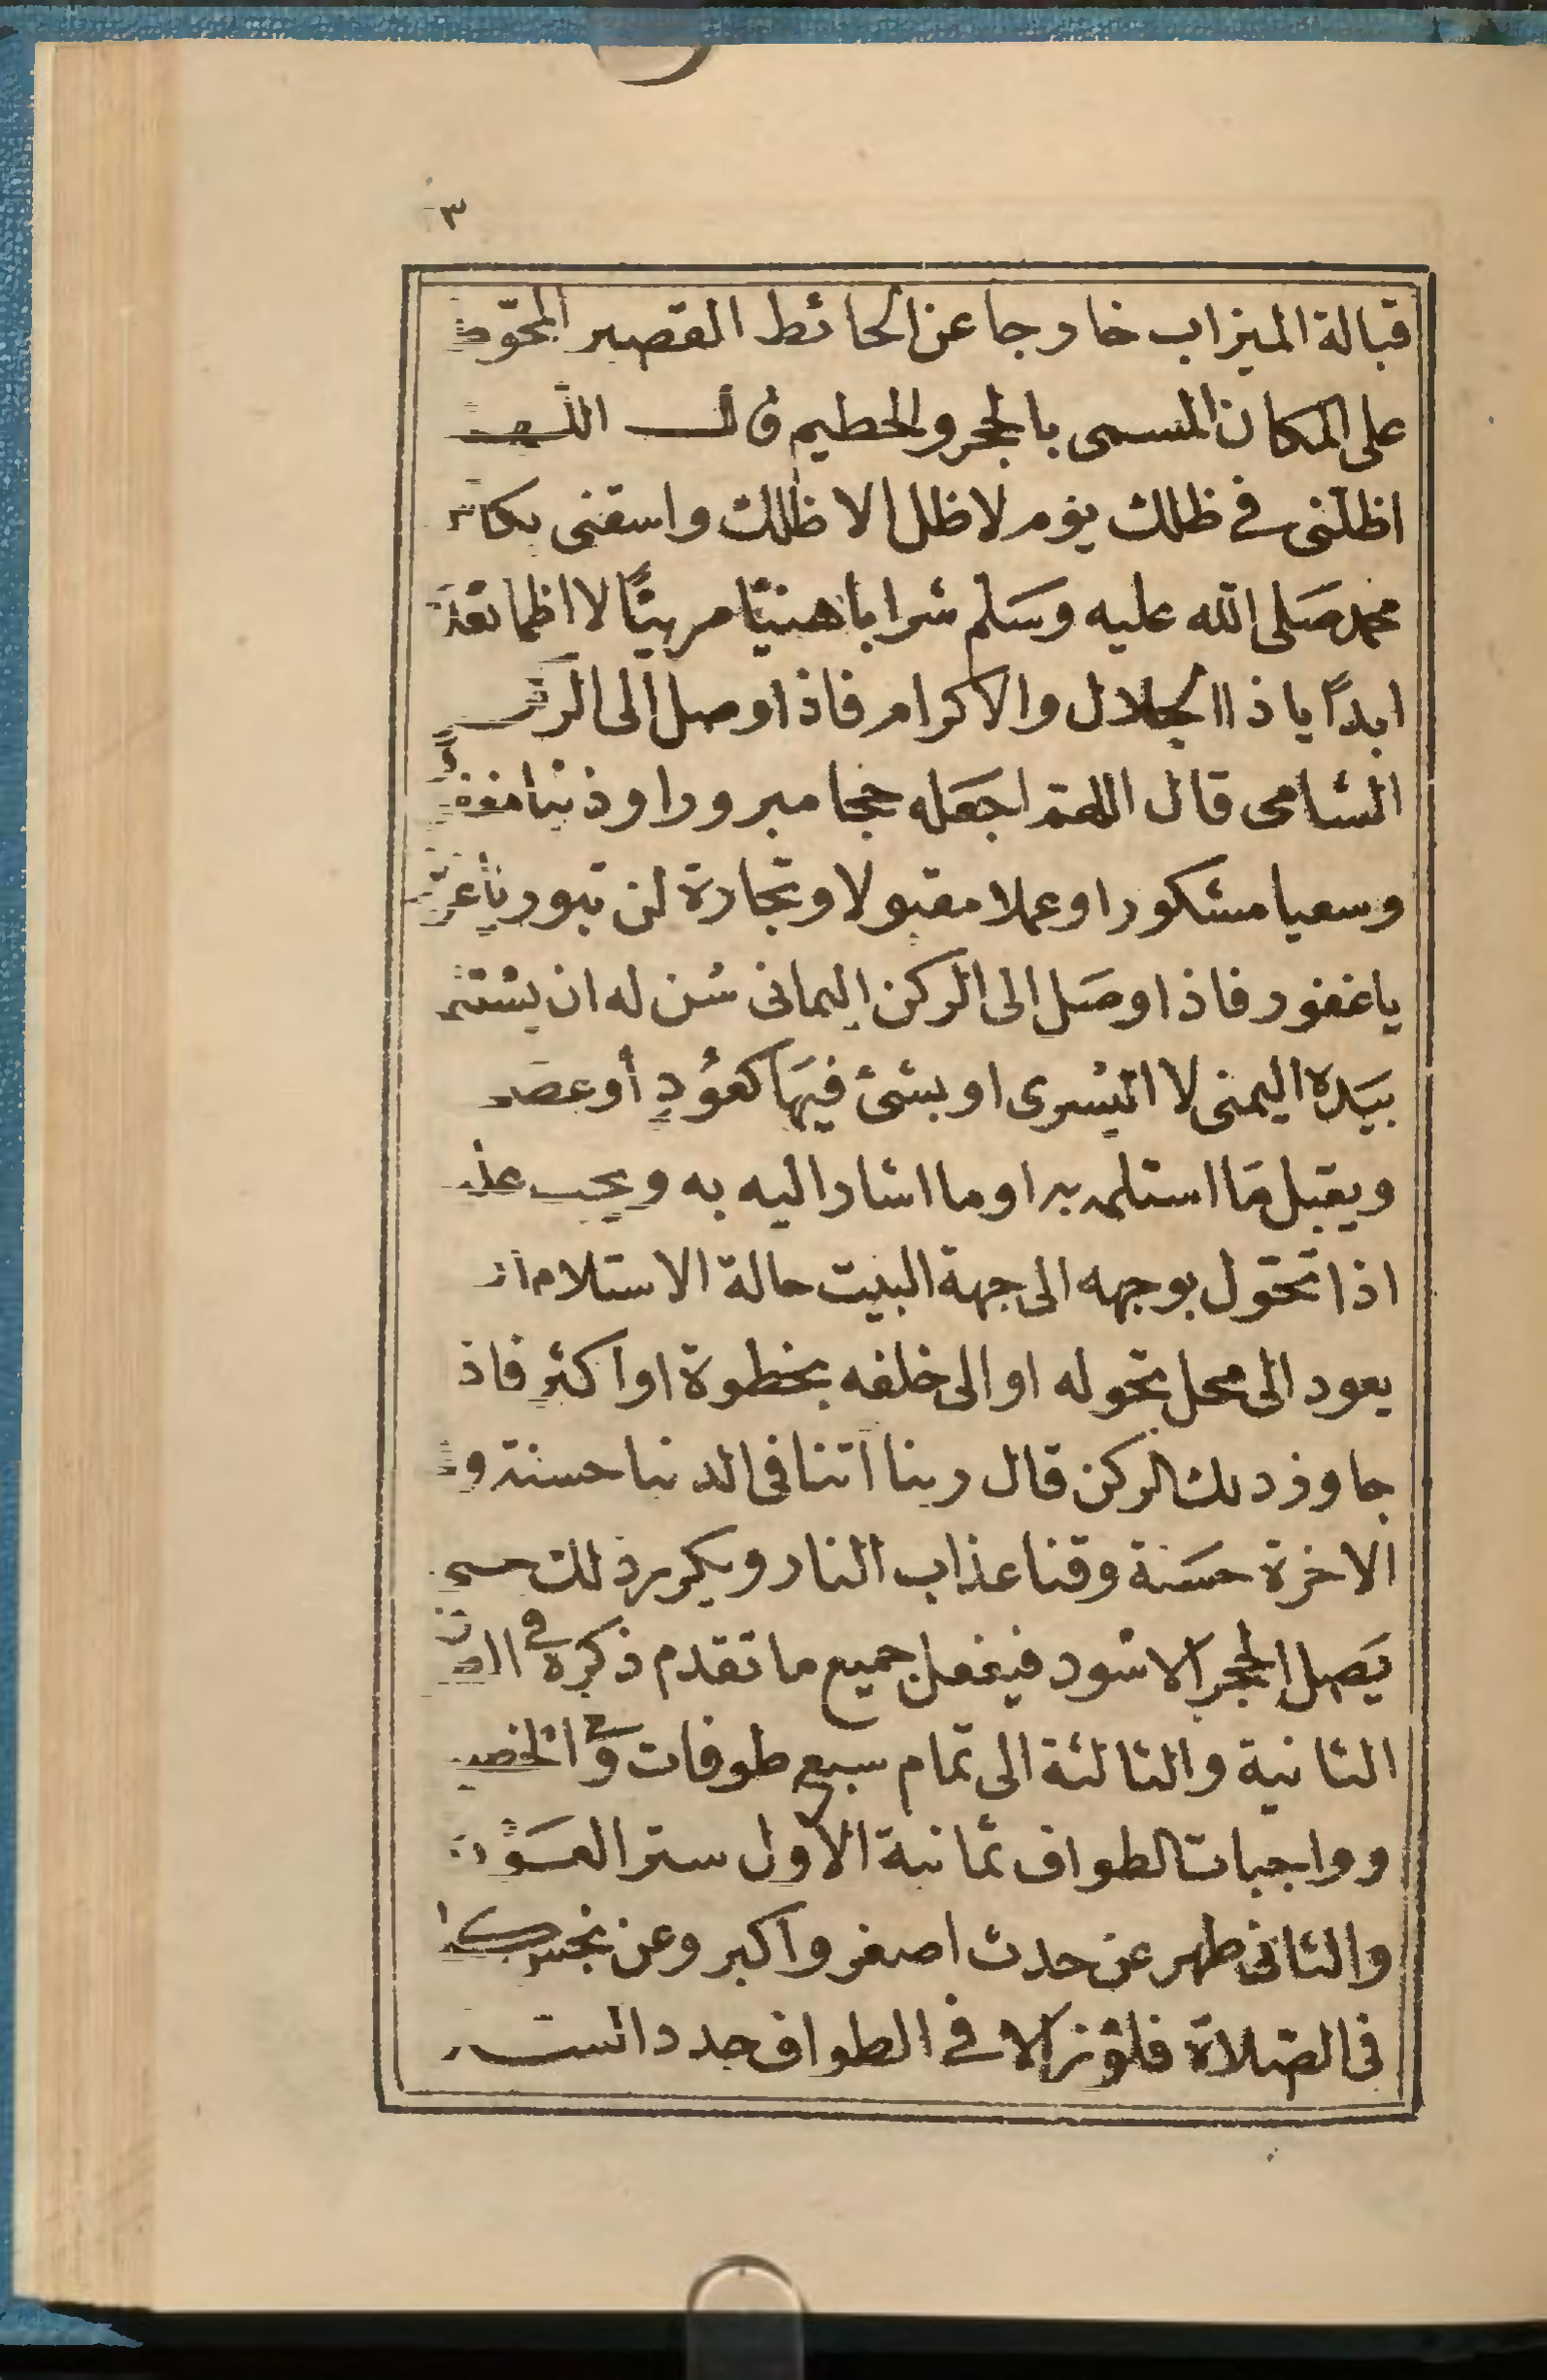 ٣
قبالة الميزاب خارجا عن الحائط القصير المحوّط
على المكان المسمى بالحجر والحطيم قال اللهم
اظلنى فى ظلك يوم لا ظل الا ظلك واسقنى بكاس
محمد صَلى الله عليه وسَلم شرابا هنيًا مريئًا لا اظما بعده
ابدًا يا ذا الجلال والاكرام فاذا وصل الى الركن
الشامى قال اللهم اجعَله حجا مبرورا وذنبا مغفورًا
وسعيا مشكورا وعملا مقبولا وتجارة لن تبور يا عزيز
يا غفور فاذا وصَل الى الركن اليمانى سُن له ان يستلم
بيَده اليمنى لا اليسرى او بشئ فيهَا كعُودٍ أو عصَى
ويقبل مَا استلمه به او ما اشار اليه به ويجب عليه
اذا تحوّل بوجهه الى جهة البيت حالة الاستلام ان
يعود الى محل تحوله او الى خلفه بخطوة او اكثر فاذا
جاوز ذلك الركن قال ربنا اتنا فى الدنيا حسنة وفى
الاخرة حسَنة وقنا عذاب النار ويكرر ذلك حتى
يَصل الحجر الاسود فيفعل جميع ما تقدم ذكره فى
الثانية والثالثة الى تمام سبع طوفات
وواجبات الطواف ثمانية الاول ستر العَوْرة
والثانى طهر عن حدث اصغر واكبر وعن نجس كما
فى الصّلاة فلو زالا فى الطواف جدد الستر